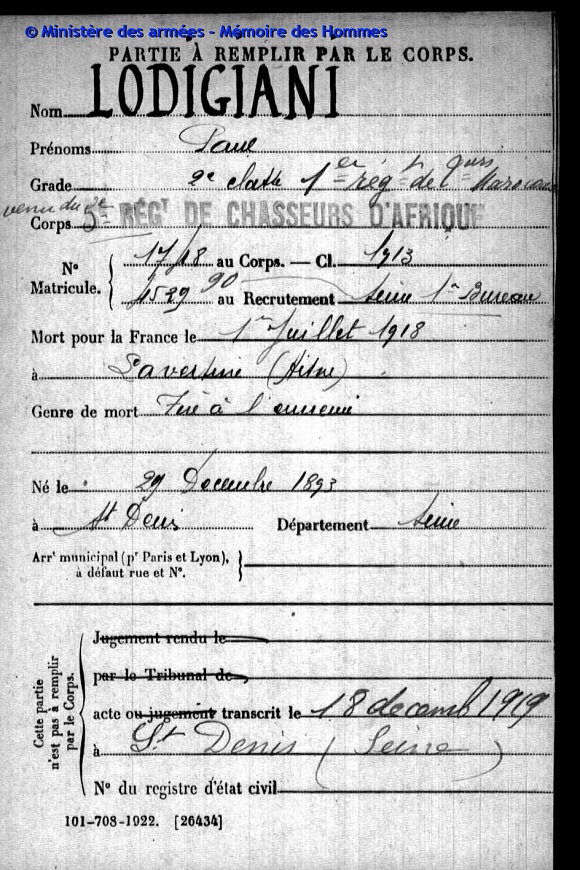 © Ministère des armées - Mémoire des Hommes
PARTIE À REMPLIR PAR LE CORPS.
Nom LODIGIANI
Prénoms Paul
Grade 2e classe 1er rég t de
venu du 5e RÉGT DE CHASSEURS D'AFRIQUE
Corps
No Matricule.
17718 au Corps. — Cl. 1913
4529 90 au Recrutement Seine 1er Bureau
Mort pour la France le 1er Juillet 1918
à (Aisne)
Genre de mort Tué à l'ennemi
Né le 29 Décembre 1893
à St Denis Département Seine
Arrt municipal (pr Paris et Lyon),
à défaut rue et No.
Cette partie
n'est pas à remplir
par le Corps.
Jugement rendu le
par le Tribunal de
acte ou jugement transcrit le 18 decemb 1919
à St Denis (Seine)
No du registre d'état civil
101-708-1922. [26434]